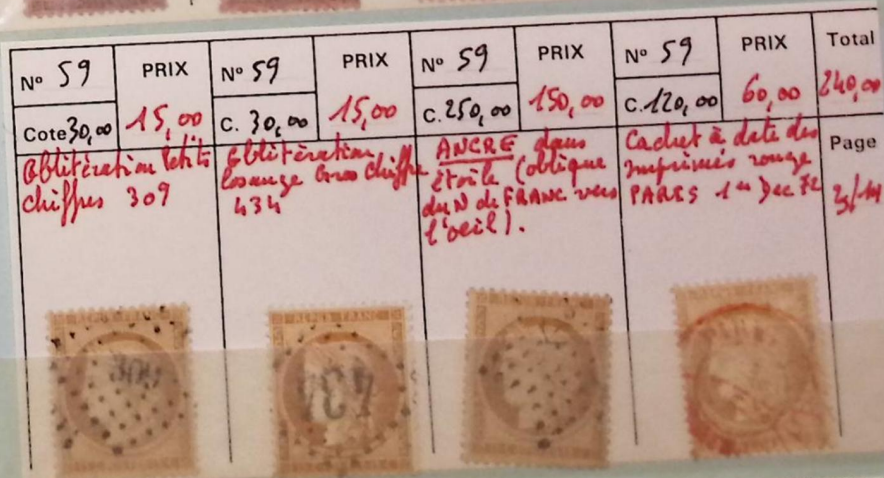 N° 59 PRIX N° 59 PRIX N° 59 PRIX N° 59 PRIX Total
Cote 30,00 15,00 C. 30,00 15,00 C. 250,00 150,00 C. 120,00 60,00 240,00
Oblitération Petits
chiffres 309
Oblitération
losange Gros chiffre
434
ANCRE dans
étoile (oblique
du N de FRANC vers
l'oeil).
Cachet à date des
imprimés rouge
PARIS 1er Dec 72
Page
3/14
309
REPUB FRANC
434